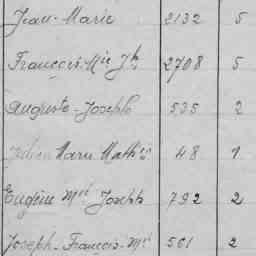 Jean-Marie 2132 5
François-Mie Jh 2708 5
Auguste-Joseph 535 2
Julien Marie Mathin 48 1
Eugène Mie Joseph 792 2
Joseph-François-Mie 501 2